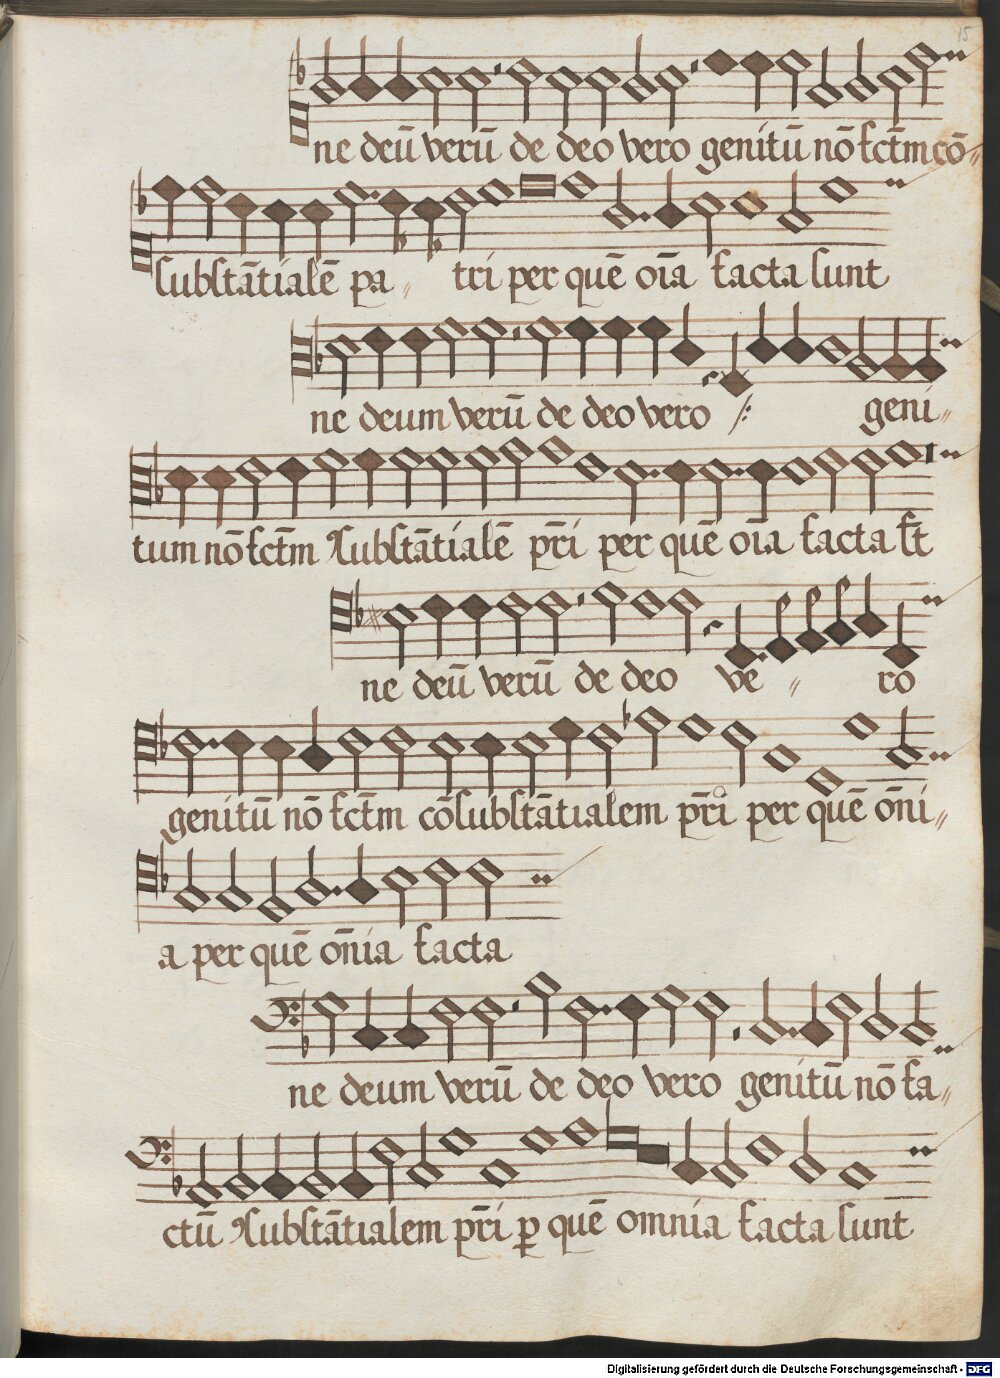 15
ne deū verū de deo vero genitū nō fct̄m cō〃
substātialē pa〃 tri per quē oīa facta sunt
ne deum verū de deo vero ·/: geni〃
tum nō fct̄m ꝯsubstātialē pr̄i per quē oīa facta st̄
ne deū verū de deo ve〃 ro
genitū nō fct̄m cōsubstātialem pr̄i per quē ōni〃
a per quē ōnia facta
ne deum verū de deo vero genitū nō fa〃
ctū ꝯsubstātialem pr̄i ꝑ quē omnia facta sunt
Digitalisierung gefördert durch die Deutsche Forschungsgemeinschaft - DFG